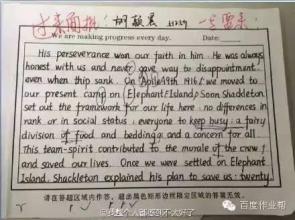 we are making progress every day. Date:
His perseverance won our faith in him. He was always
honest with us and never gave way to disappointment
even when ship sank. On we moved to
our present camp on (Elephant Island) Soon Shackleton
set out the framework for our life here: no differences in
rank or in social status; everyone to keep busy; a fairy
division of food and bedding; and a concern for all.
This team-spirit contributed to the morale of the crew
and saved our lives. Once we were settled on Elephant
Island, Shackleton explained his plan to save us: twenty
请在各题区域内作答，超出黑色矩形边框限定区域的答案无效。
百度作业帮